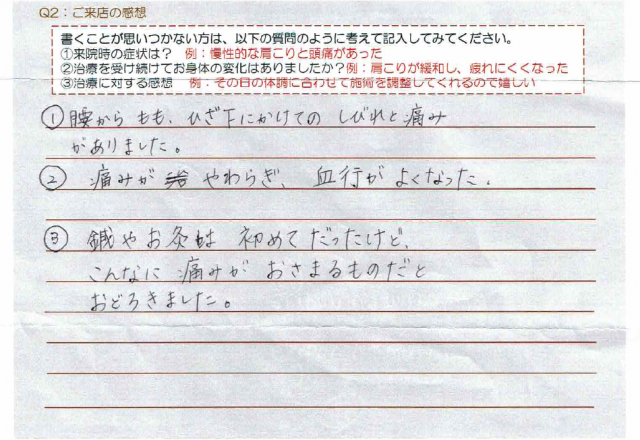 Q2：ご来店の感想
書くことが思いつかない方は、以下の質問のように考えて記入してみてください。
①来院時の症状は？　例：慢性的な肩こりと頭痛があった
②治療を受け続けてお身体の変化はありましたか？例：肩こりが緩和し、疲れにくくなった
③治療に対する感想　例：その日の体調に合わせて施術を調整してくれるので嬉しい
①腰から もも、ひざ下にかけての しびれと痛み
がありました。
② 痛みが やわらぎ、血行が よくなった。
③ 鍼やお灸は 初めてだったけど、
こんなに 痛みが おさまるものだと
おどろきました。